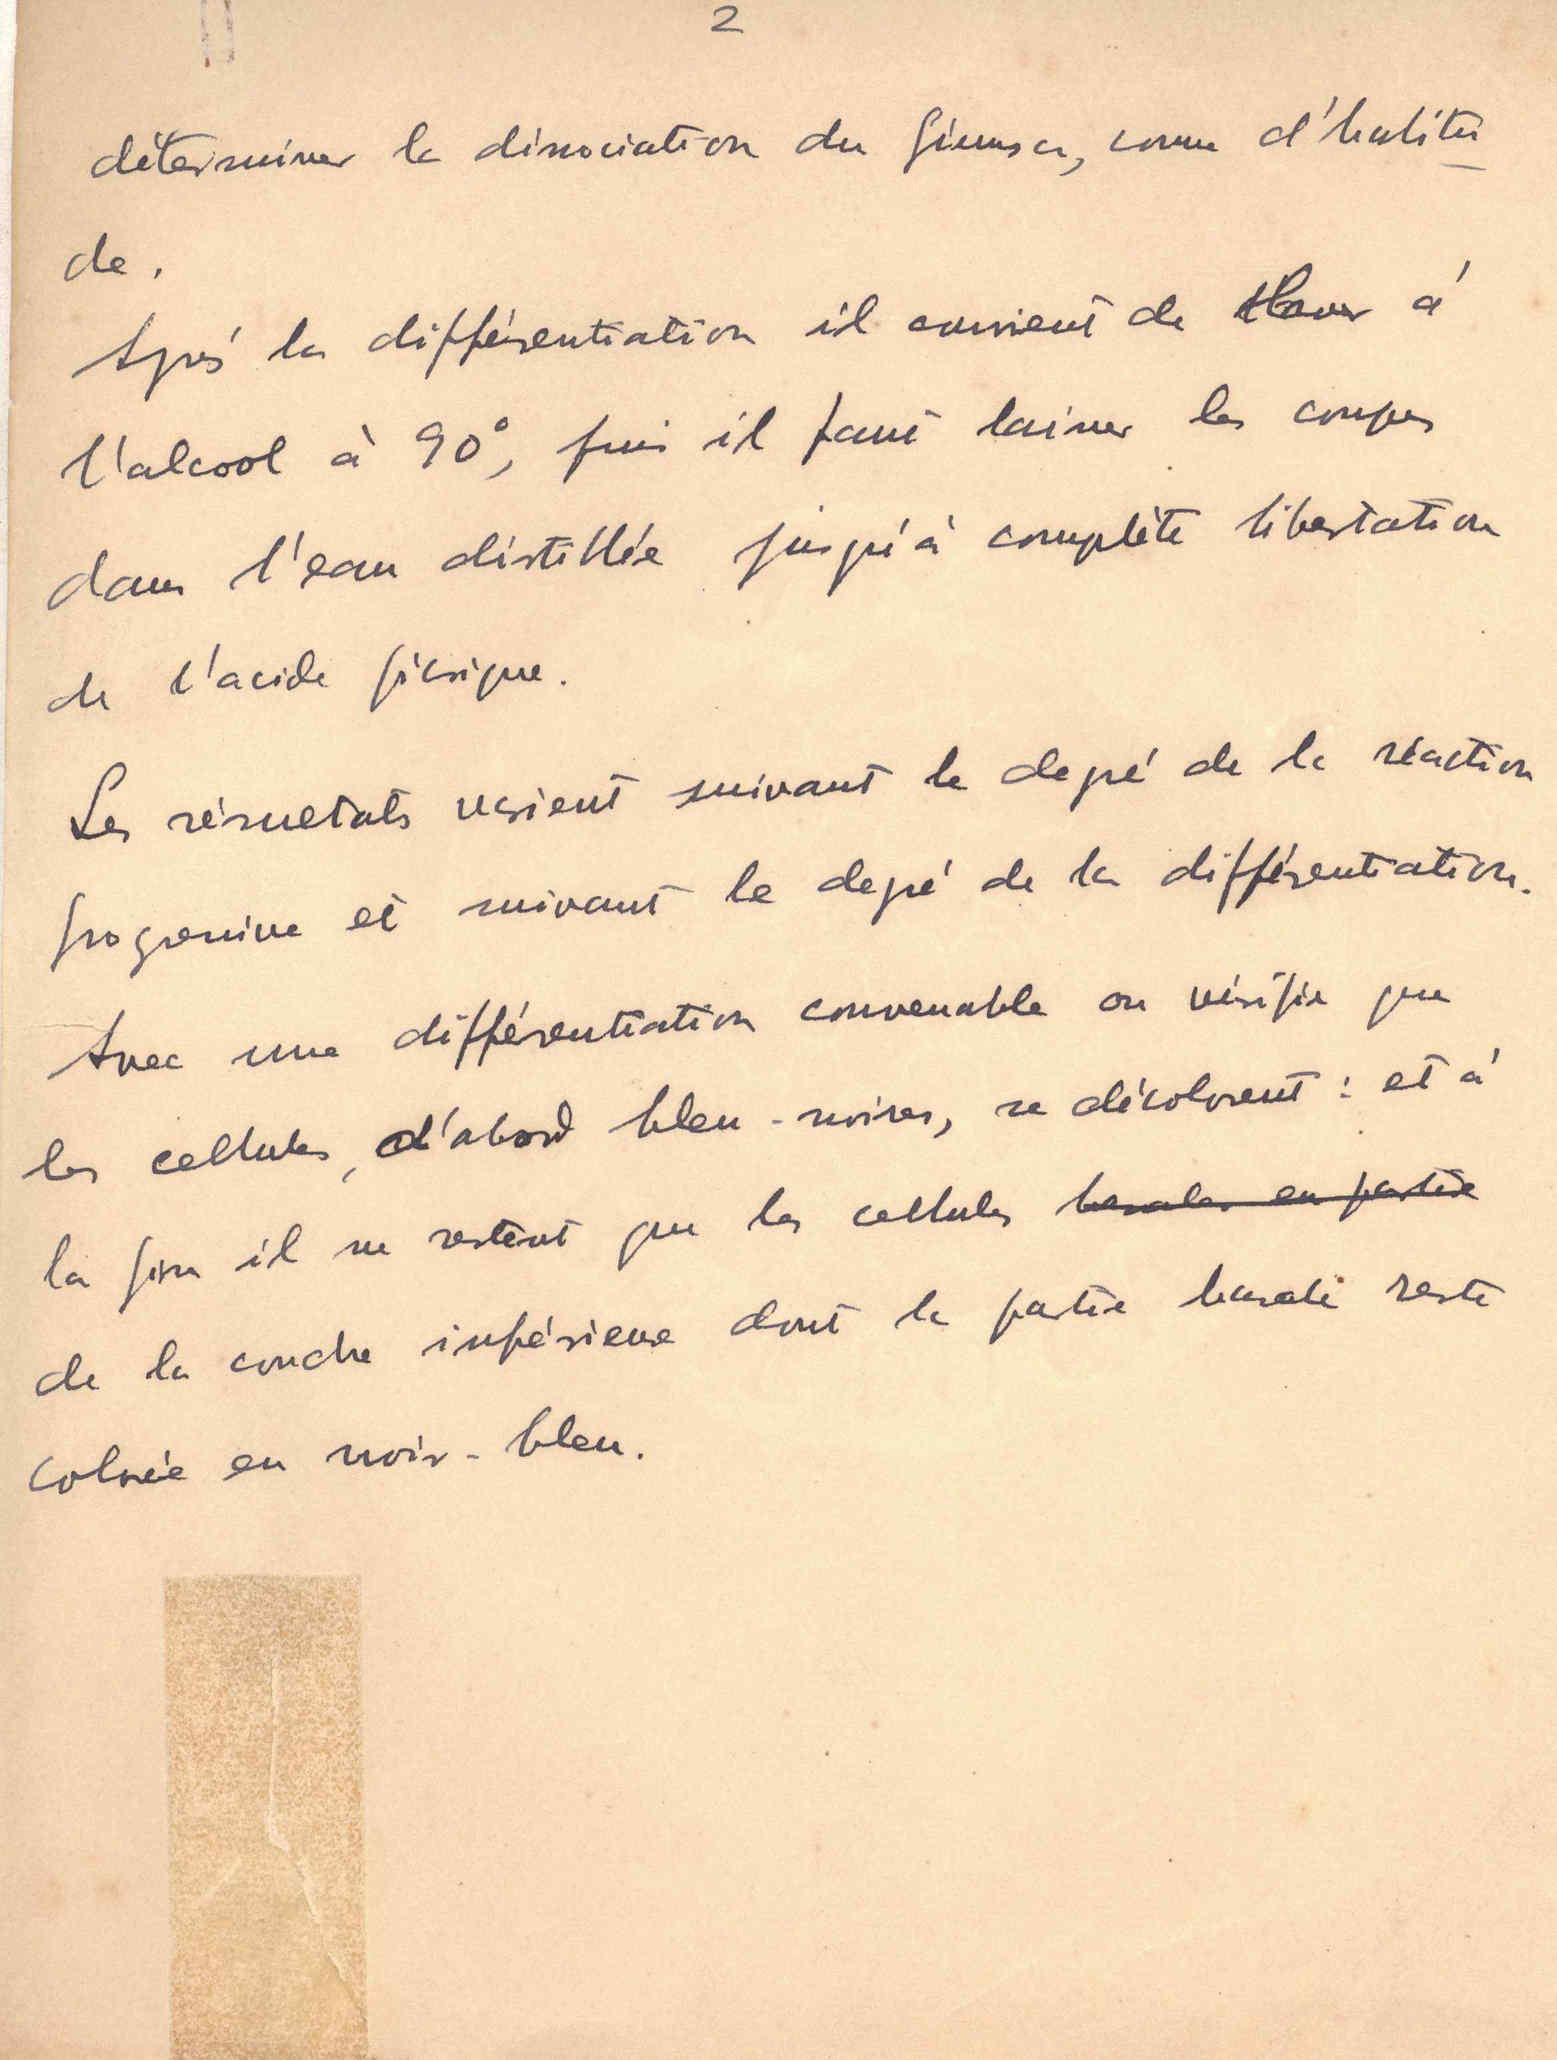 2
déterminer la dissociation du Giemsa, comme d'habitu
de.
Après la différentiation il convient de laver à
l'alcool à 90°, puis il faut laisser les coupes
dans l'eau distillée jusqu'à complète libertation
de l'acide picrique.
Les résultats varient suivant le degré de la réaction
progressive et suivant le degré de la différentiation.
Avec une différentiation convenable on vérifie que
les cellules, d'abord bleu-noires, se décolorent : et à
la fin il ne restent que les cellules basales en partie
de la couche inférieure dont la partie basale reste
colorée en noir-bleu.